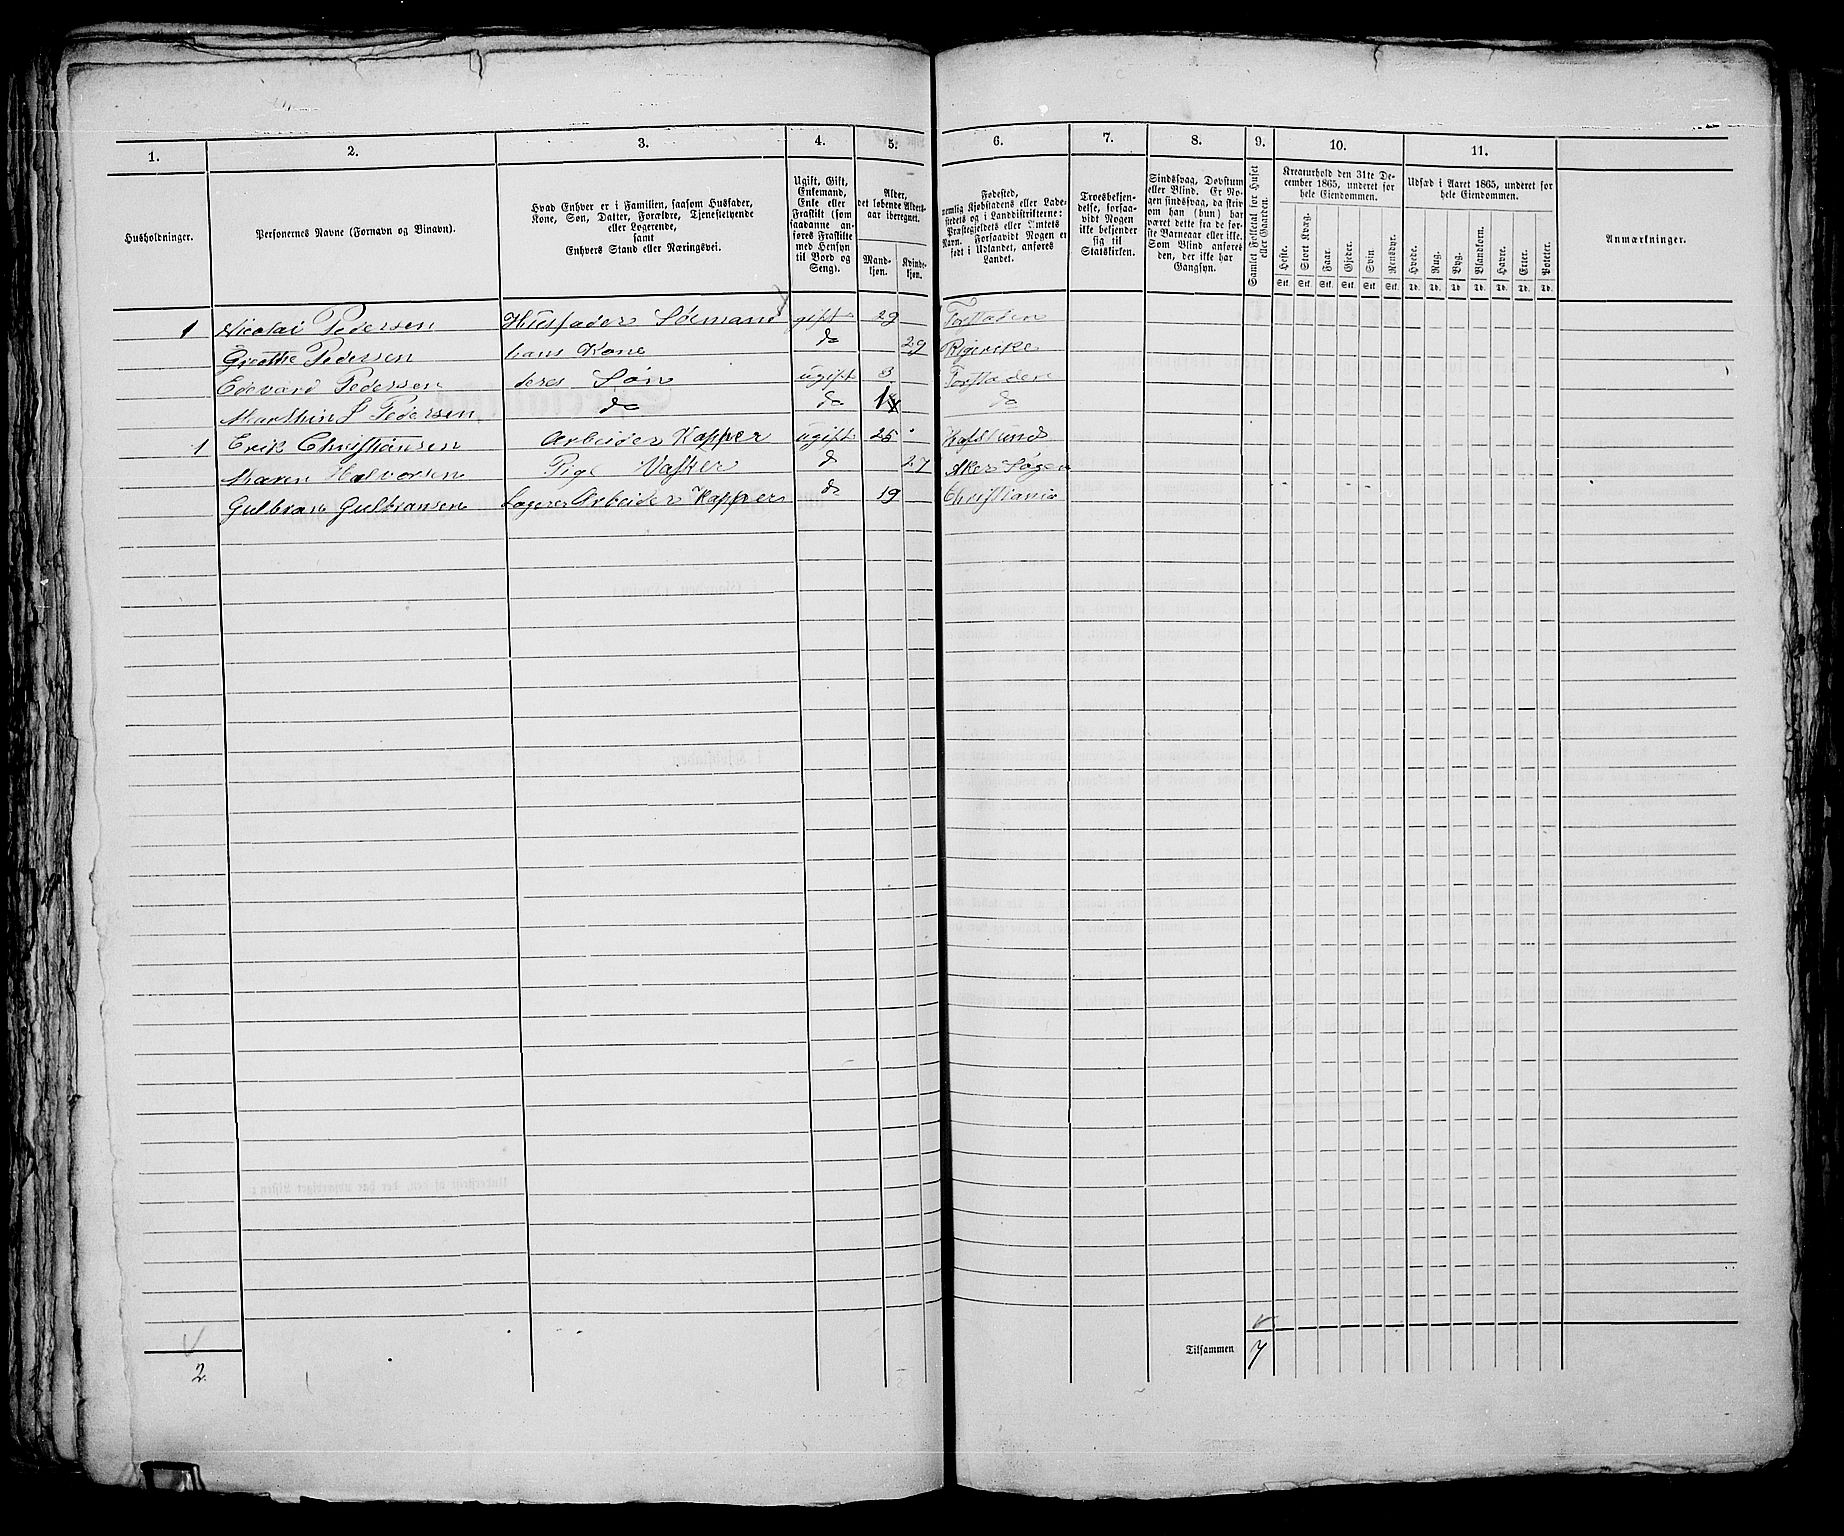 1. 2. 3. 4. 5. 6. 7. 8. 9. 10. 11.
Husholdninger.
Personernes Navne (Fornavn og Binavn).
Hvad Enhver er i Familien, saasom Husfader,
Kone, Søn, Datter, Forældre, Tjenestetyende
eller Logerende,
samt
Enhvers Stand eller Næringsvei.
Ugift, Gift,
Enkemand,
Enke eller
Fraskilt (som
saadanne an-
føres Fraskilte
med Hensyn
til Bord og
Seng).
Alder,
det løbende Alders-
aar iberegnet.
Mand-
kjøn.
Kvinde-
kjøn.
Fødested,
nemlig Kjøbstadens eller Lade-
stedets og i Landdistrikterne:
Præstegjeldets eller Amtets
Navn. Forsaavidt Nogen er
født i Udlandet, anføres
Landet.
Troesbekjen-
delse, forsaa-
vidt Nogen
ikke bekjender
sig til
Statskirken.
Sindssvag, Døvstum
eller Blind. Er No-
gen sindssvag, da skriv
om han (hun) har
været dette fra de før-
ste Barneaar eller ikke.
Som Blind anføres
den, der ikke har
Gangsyn.
Samlet Folketal for Huset
eller Gaarden.
Kreaturhold den 31te De-
cember 1865, underet for
hele Eiendommen.
Heste. Stort Kvæg. Faar. Gjeder. Svin. Rensdyr.
Stk. Stk. Stk. Stk. Stk. Stk.
Udsæd i Aaret 1865, underet for
hele Eiendommen.
Hvede. Rug. Byg. Blandkorn. Havre. Erter. Poteter.
Td. Td. Td. Td. Td. Td. Td.
Anmærkninger.
1 Nicolai Pedersen Husfader Sømand gift 29 Forstaden
Grethe Pedersen hans Kone do 29 Rigerike
Edevard Pedersen deres Søn ugift 3 Forstaden
Marthin Pedersen do do 1 do
1 Erik Christiansen Arbeider Kapper ugift 25 Hafslund
Maren Halvorsen Pige Vasker do 27 Aker Sogen
Gulbran Gulbransen Logerer Arbeider Kapper do 19 Christiania
Tilsammen 7
2